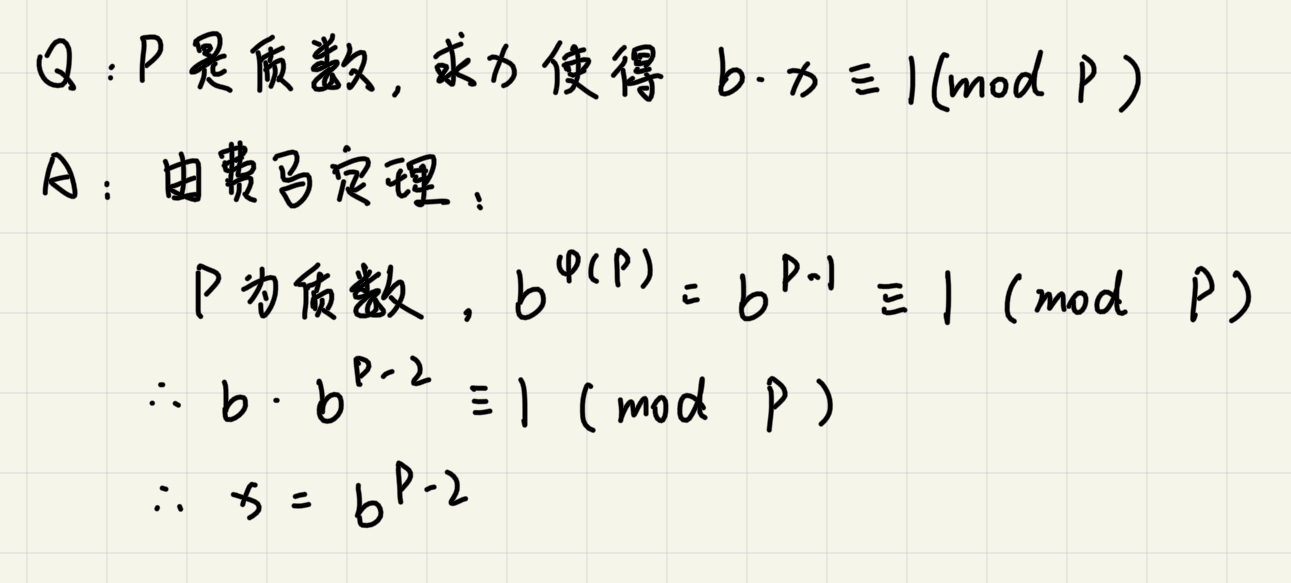 Q：P 是质数，求 x 使得 b · x ≡ 1 (mod P)
A：由费马定理：
P 为质数，b^φ(P) = b^(P-1) ≡ 1 (mod P)
∴ b · b^(P-2) ≡ 1 (mod P)
∴ x = b^(P-2)